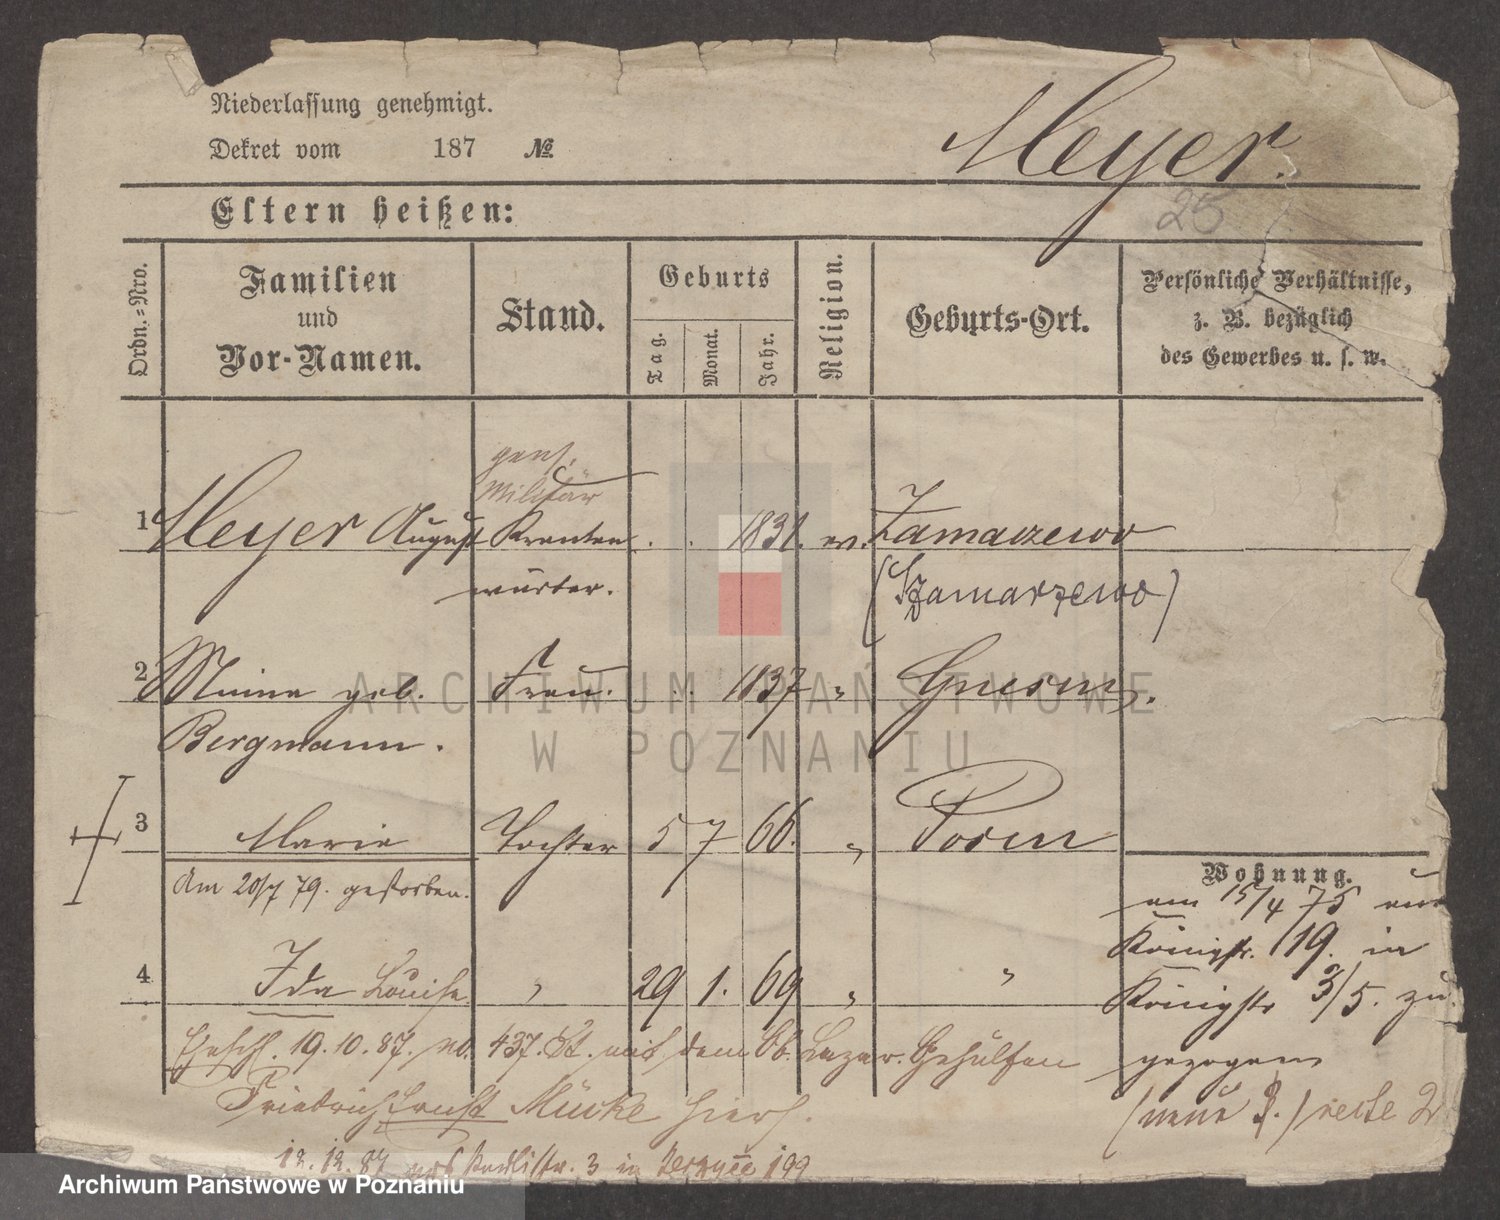 Niederlassung genehmigt.
Dekret vom 187 №
Meyer.
25
Eltern heißen:
Ordn.-Nro.
Familien und Vor-Namen.
Stand.
Geburts
Tag.
Monat.
Jahr.
Religion.
Geburts-Ort.
Persönliche Verhältnisse,
z. B. bezüglich
des Gewerbes u. s. w.
pens.
Militär
1 Meyer August Kranken . . 1831. ev. Zamarzewo
wärter. (Szamarzewo)
2 Minna geb. Frau. . . 1837 " Gnesen.
Bergmann.
3 Marie Tochter 5 7 66. " Posen
Am 20/7 79. gestorben.
Wohnung.
am 15/4 75 aus
Königstr. 19. in
4 Ida Louise " 29 1. 69 " "
Königstr 3/5. zu
gezogen
Ehesch. 19.10.87. No. 437. St. mit dem Ob. Lazar. Gehülfen
Friedrich Ernst Mücke hier.
(neue
12.12.87 3 in 199
ARCHIWUM PAŃSTWOWE
W POZNANIU
Archiwum Państwowe w Poznaniu